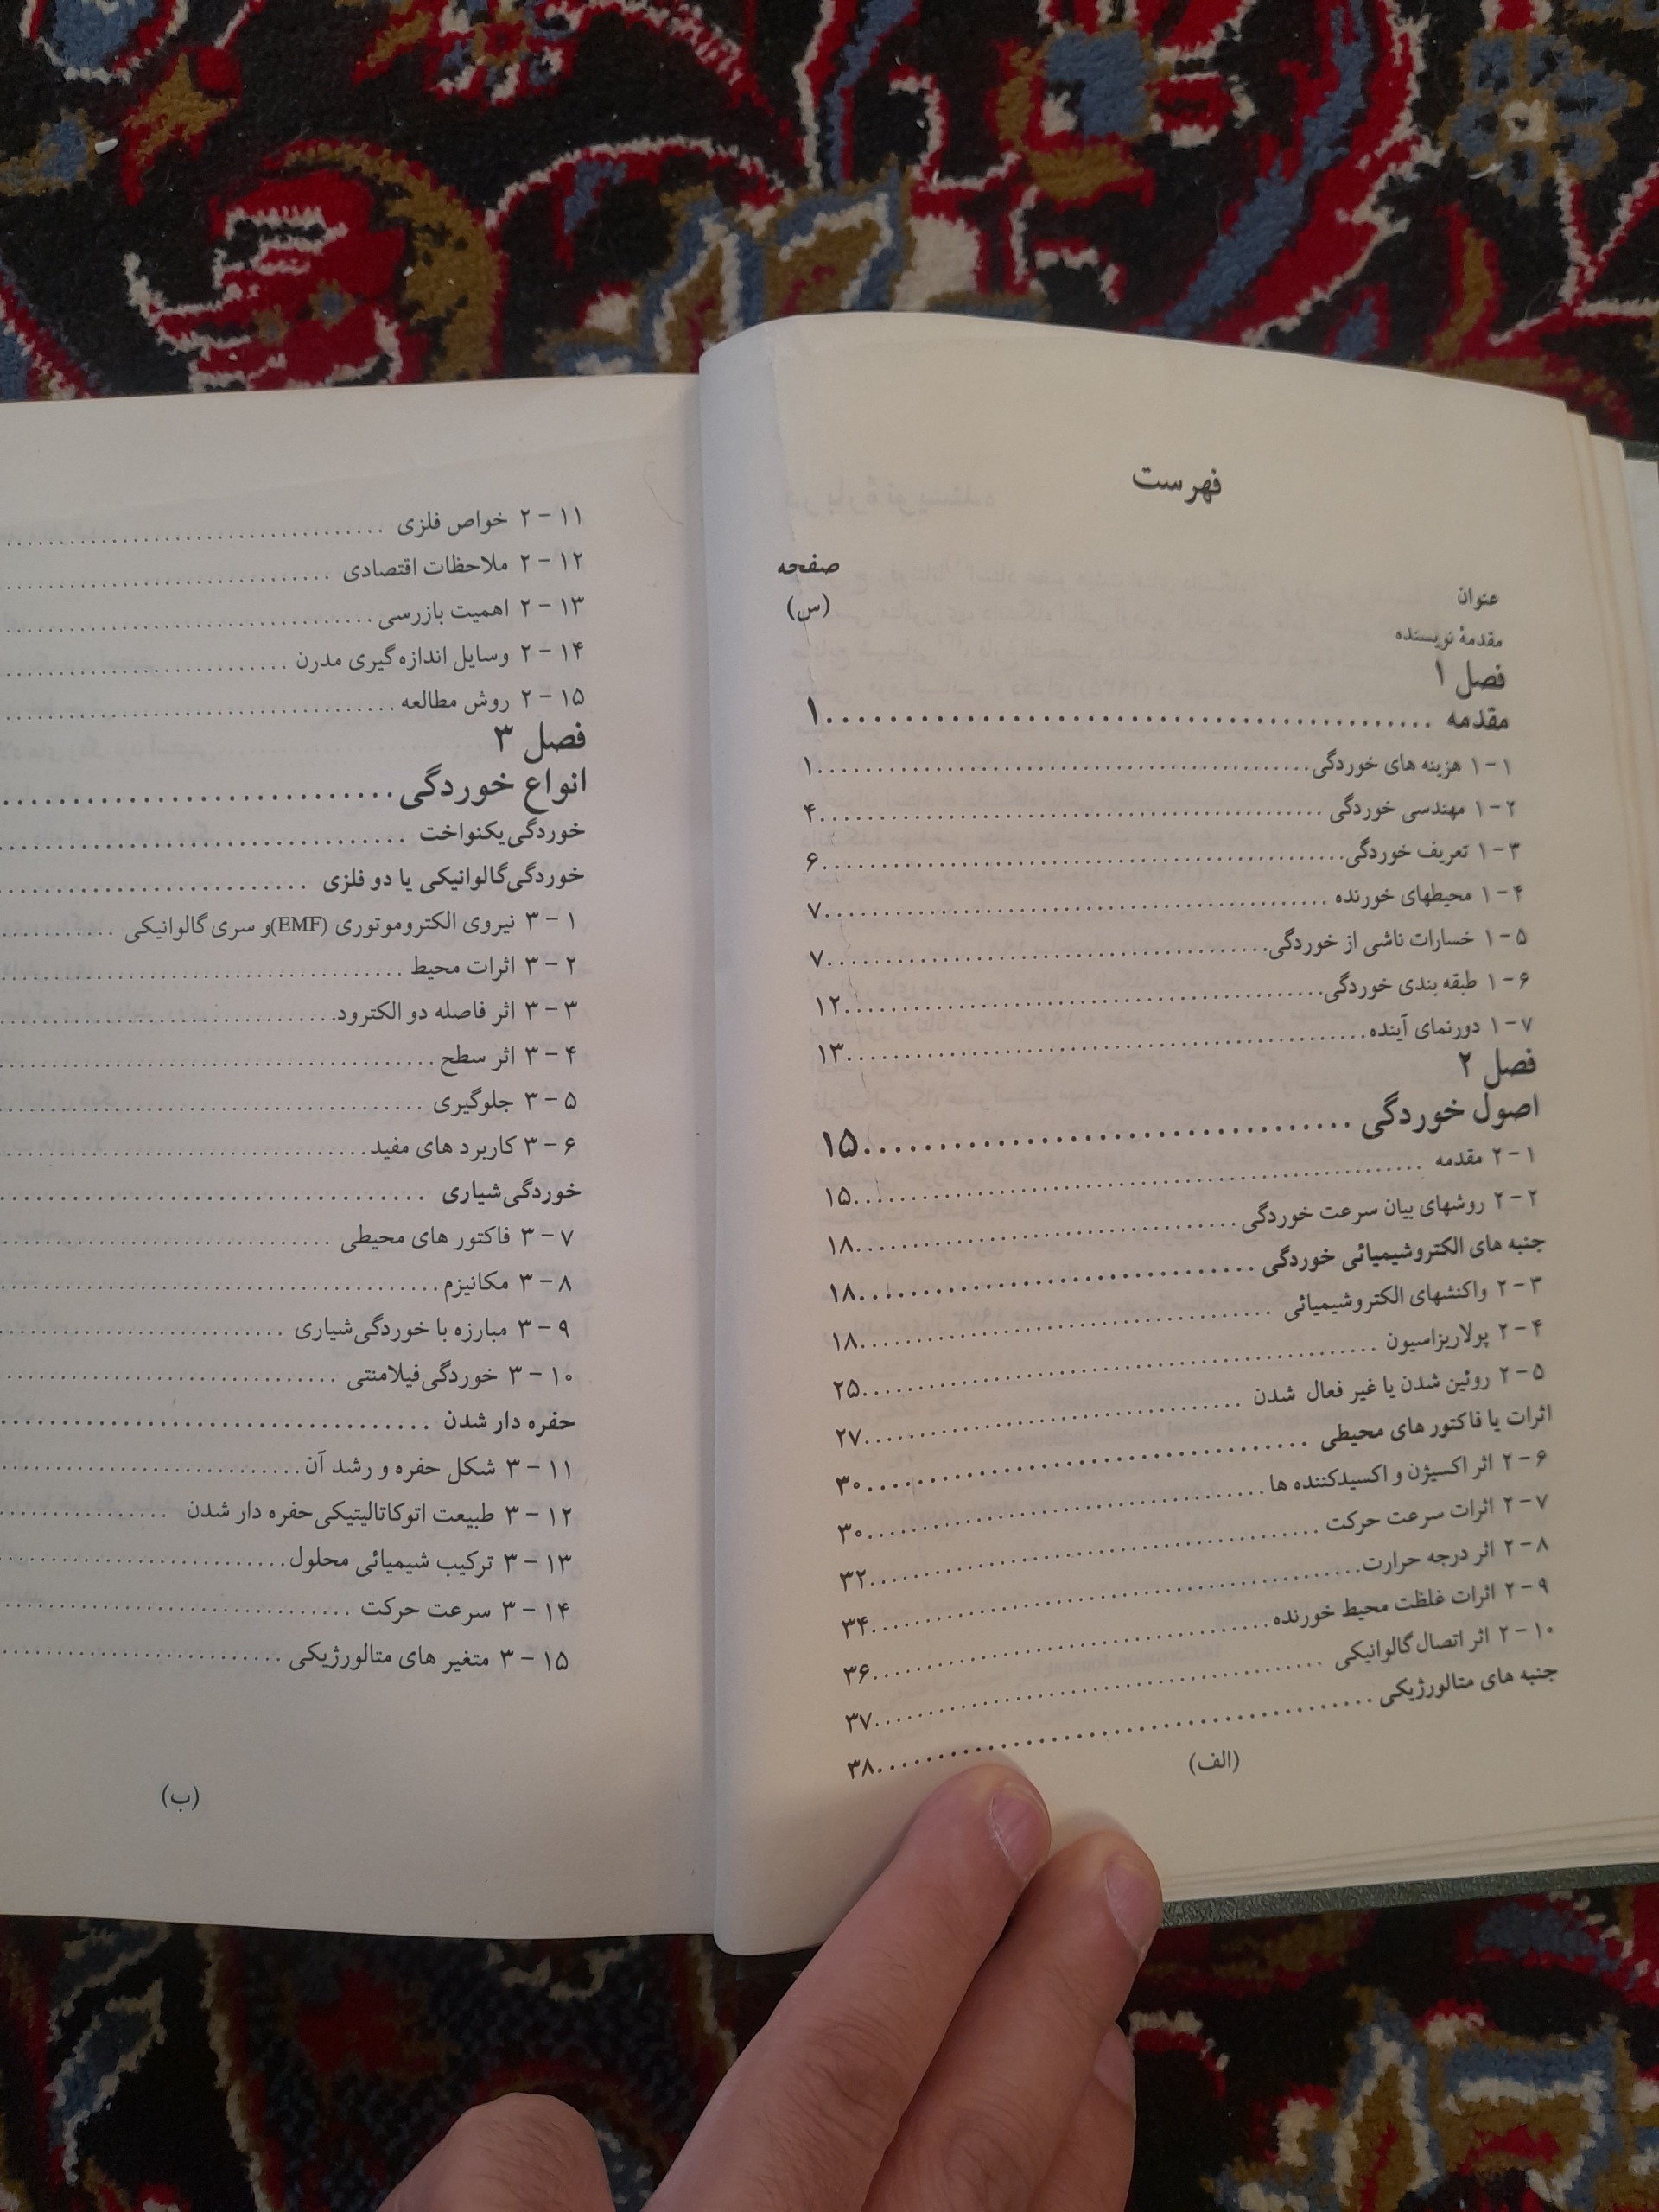 فهرست
صفحه
عنوان
(س)
مقدمهٔ نویسنده
فصل ۱
مقدمه ........................................ ۱
۱-۱ هزینه های خوردگی ........................................ ۱
۱-۲ مهندسی خوردگی ........................................ ۴
۱-۳ تعریف خوردگی ........................................ ۶
۱-۴ محیطهای خورنده ........................................ ۷
۱-۵ خسارات ناشی از خوردگی ........................................ ۷
۱-۶ طبقه بندی خوردگی ........................................ ۱۲
۱-۷ دورنمای آینده ........................................ ۱۳
فصل ۲
اصول خوردگی ........................................ ۱۵
۲-۱ مقدمه ........................................ ۱۵
۲-۲ روشهای بیان سرعت خوردگی ........................................ ۱۸
جنبه های الکتروشیمیائی خوردگی ........................................ ۱۸
۲-۳ واکنشهای الکتروشیمیائی ........................................ ۱۸
۲-۴ پولاریزاسیون ........................................ ۲۵
۲-۵ روئین شدن یا غیر فعال شدن ........................................ ۲۷
اثرات یا فاکتور های محیطی ........................................ ۳۰
۲-۶ اثر اکسیژن و اکسیدکننده ها ........................................ ۳۰
۲-۷ اثرات سرعت حرکت ........................................ ۳۲
۲-۸ اثر درجه حرارت ........................................ ۳۴
۲-۹ اثرات غلظت محیط خورنده ........................................ ۳۶
۲-۱۰ اثر اتصال گالوانیکی ........................................ ۳۷
جنبه های متالورژیکی ........................................ ۳۸
(الف)
۲-۱۱ خواص فلزی ........................................
۲-۱۲ ملاحظات اقتصادی ........................................
۲-۱۳ اهمیت بازرسی ........................................
۲-۱۴ وسایل اندازه گیری مدرن ........................................
۲-۱۵ روش مطالعه ........................................
فصل ۳
انواع خوردگی ........................................
خوردگی یکنواخت ........................................
خوردگی گالوانیکی یا دو فلزی ........................................
۳-۱ نیروی الکتروموتوری (EMF)و سری گالوانیکی ..........
۳-۲ اثرات محیط ........................................
۳-۳ اثر فاصله دو الکترود ........................................
۳-۴ اثر سطح ........................................
۳-۵ جلوگیری ........................................
۳-۶ کاربرد های مفید ........................................
خوردگی شیاری ........................................
۳-۷ فاکتور های محیطی ........................................
۳-۸ مکانیزم ........................................
۳-۹ مبارزه با خوردگی شیاری ........................................
۳-۱۰ خوردگی فیلامنتی ........................................
حفره دار شدن ........................................
۳-۱۱ شکل حفره و رشد آن ........................................
۳-۱۲ طبیعت اتوکاتالیتیکی حفره دار شدن ....................
۳-۱۳ ترکیب شیمیائی محلول ........................................
۳-۱۴ سرعت حرکت ........................................
۳-۱۵ متغیر های متالورژیکی ........................................
(ب)